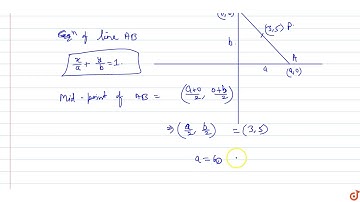 (0,b)
Eqⁿ of line AB
(3,5) P.
x/a + y/b = 1.
b
A
a
(a,0)
Mid-point of AB = ((a+0)/2, (0+b)/2)
⇒ (a/2, b/2) = (3,5)
a = 6